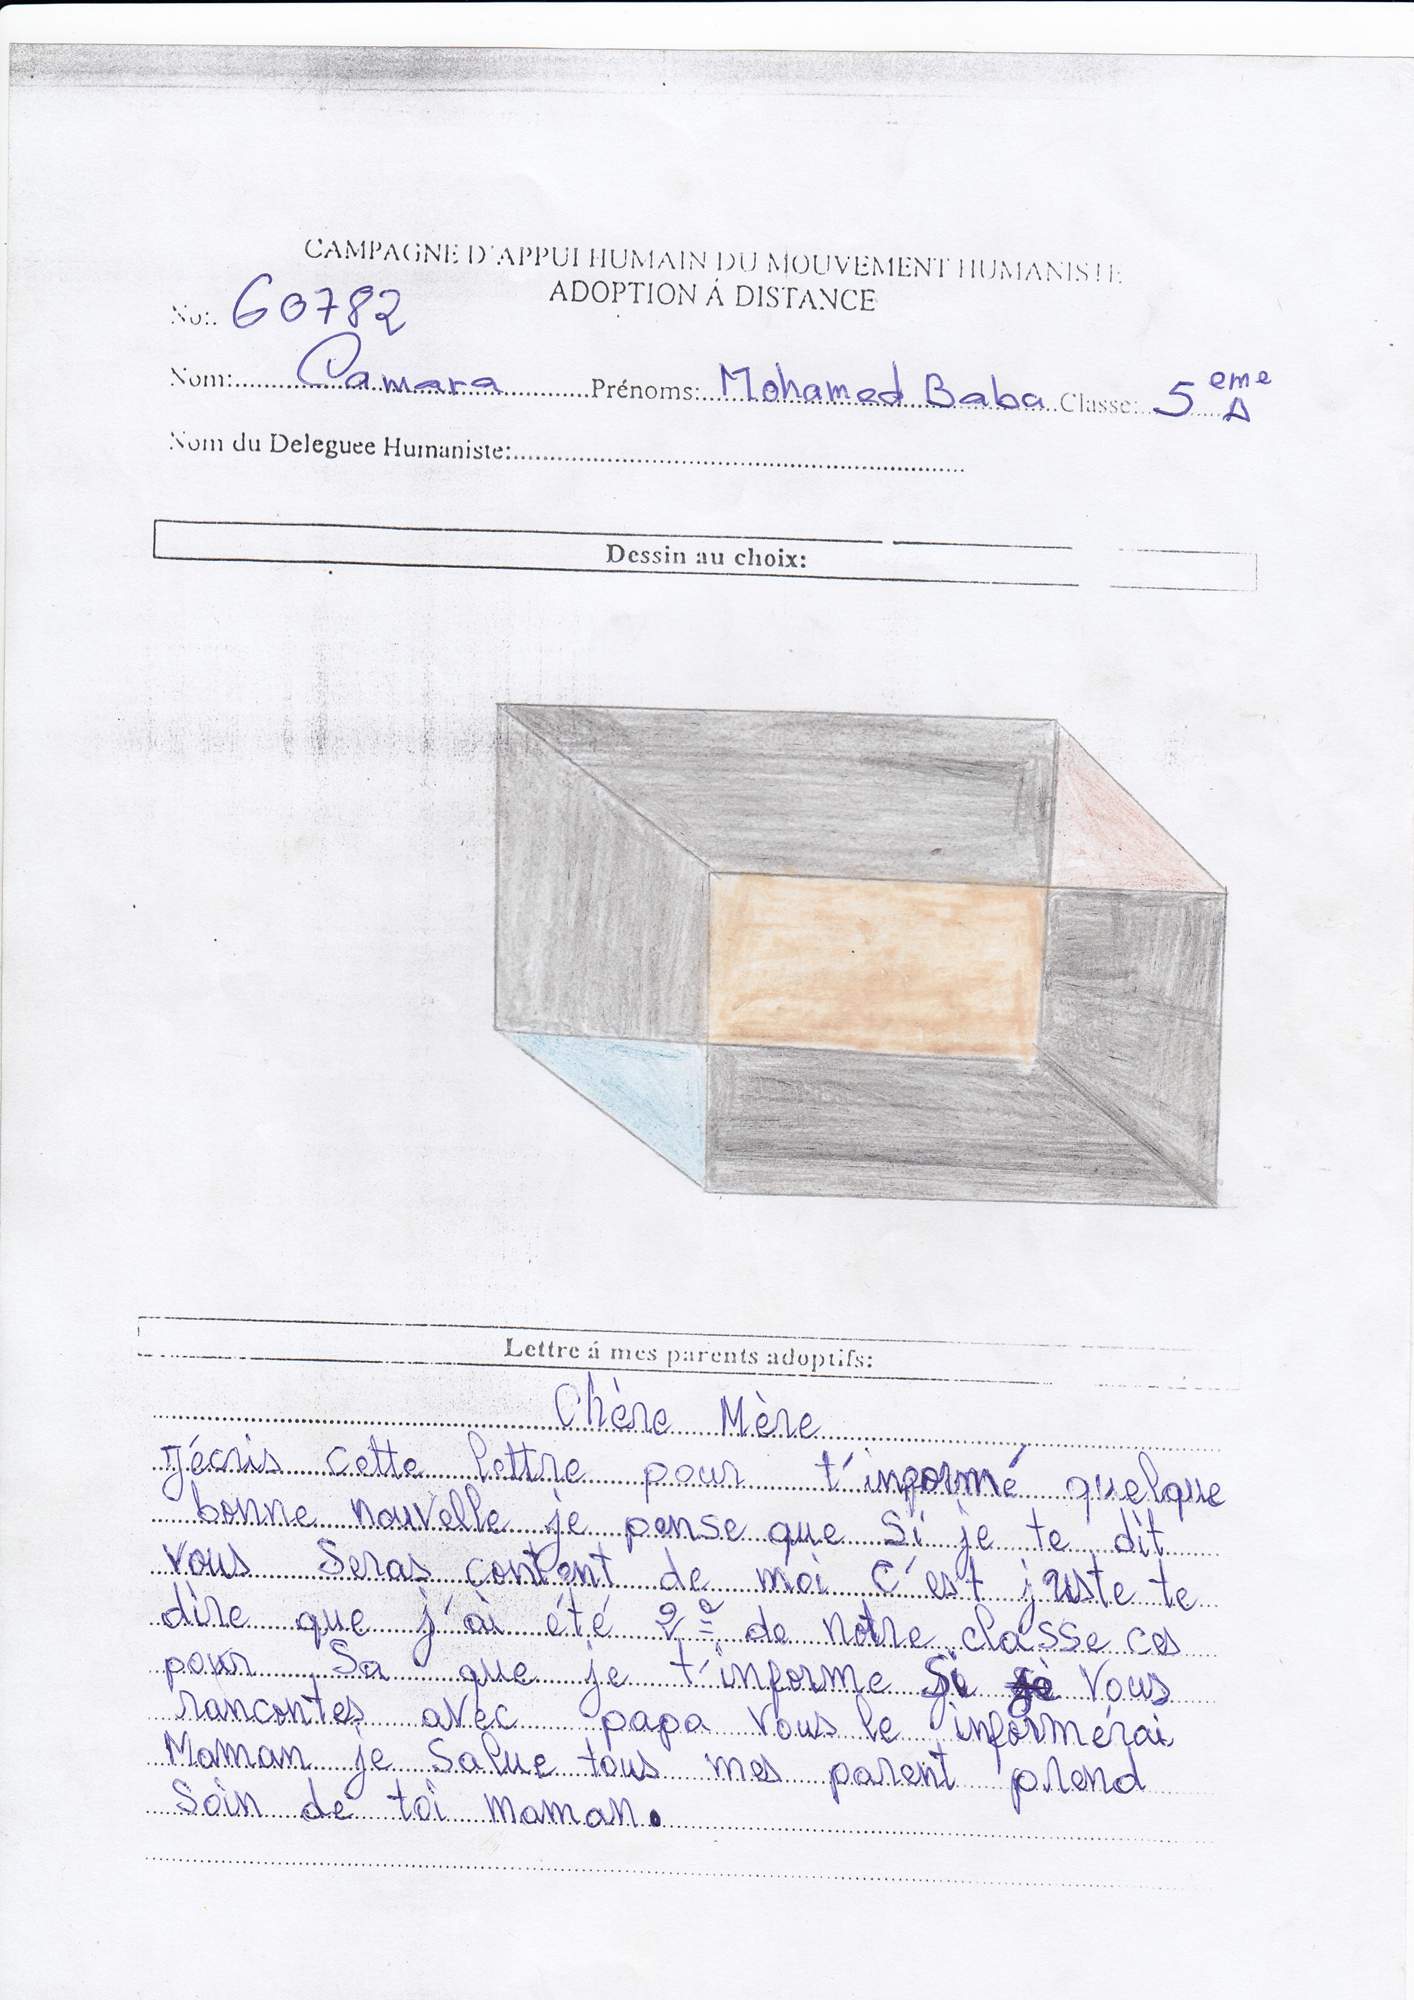 CAMPAGNE D'APPUI HUMAIN DU MOUVEMENT HUMANISTE
ADOPTION Á DISTANCE
No:. G0782
Nom: Camara Prénoms: Mohamed Baba Classe: 5 eme A
Nom du Deleguee Humaniste:
Dessin au choix:
Lettre á mes parents adoptifs:
Chère Mère
J'écris cette lettre pour t'informé quelque
bonne nouvelle je pense que si je te dit
vous seras content de moi c'est juste te
dire que j'ai été 2e de notre classe ces
pour sa que je t'informe si vous
rancontes avec papa vous le informérai
Maman je salue tous mes parent prend
soin de toi maman.